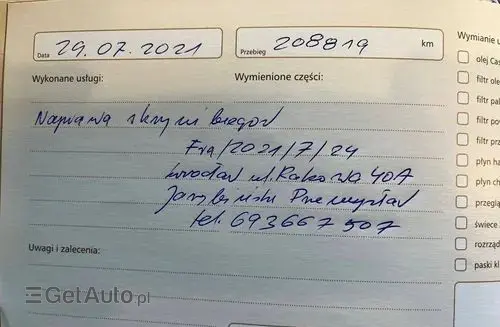 Data 29.07.2021
Przebieg 208819 km
Wymianie u
Wykonane usługi:
Wymienione części:
olej Cas
filtr ole
filtr pa
filtr po
filtr prz
płyn ha
płyn ch
przeglą
świece
rozrząd
paski kl
Naprawa skrzyni biegów
Fra/2021/7/24
Wrocław ul. Rakowa 40A
Przemysław
tel. 693667507
Uwagi i zalecenia:
GetAuto.pl